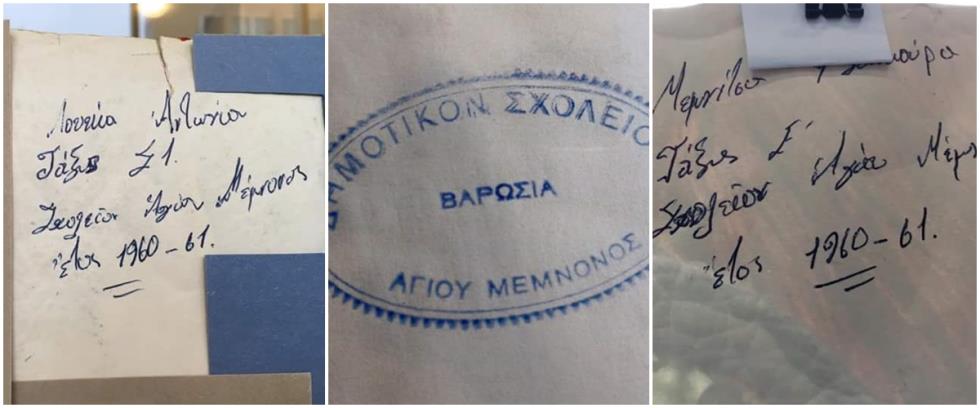 Λουκία Ἀντωνία
Τάξις Σ1.
Σχολεῖον Ἁγίου Μέμνονος
Ἔτος 1960-61.
ΔΗΜΟΤΙΚΟΝ ΣΧΟΛΕΙΟ
ΒΑΡΩΣΙΑ
ΑΓΙΟΥ ΜΕΜΝΟΝΟΣ
Τάξις
Σχολεῖον Ἁγίου
Ἔτος 1960-61.